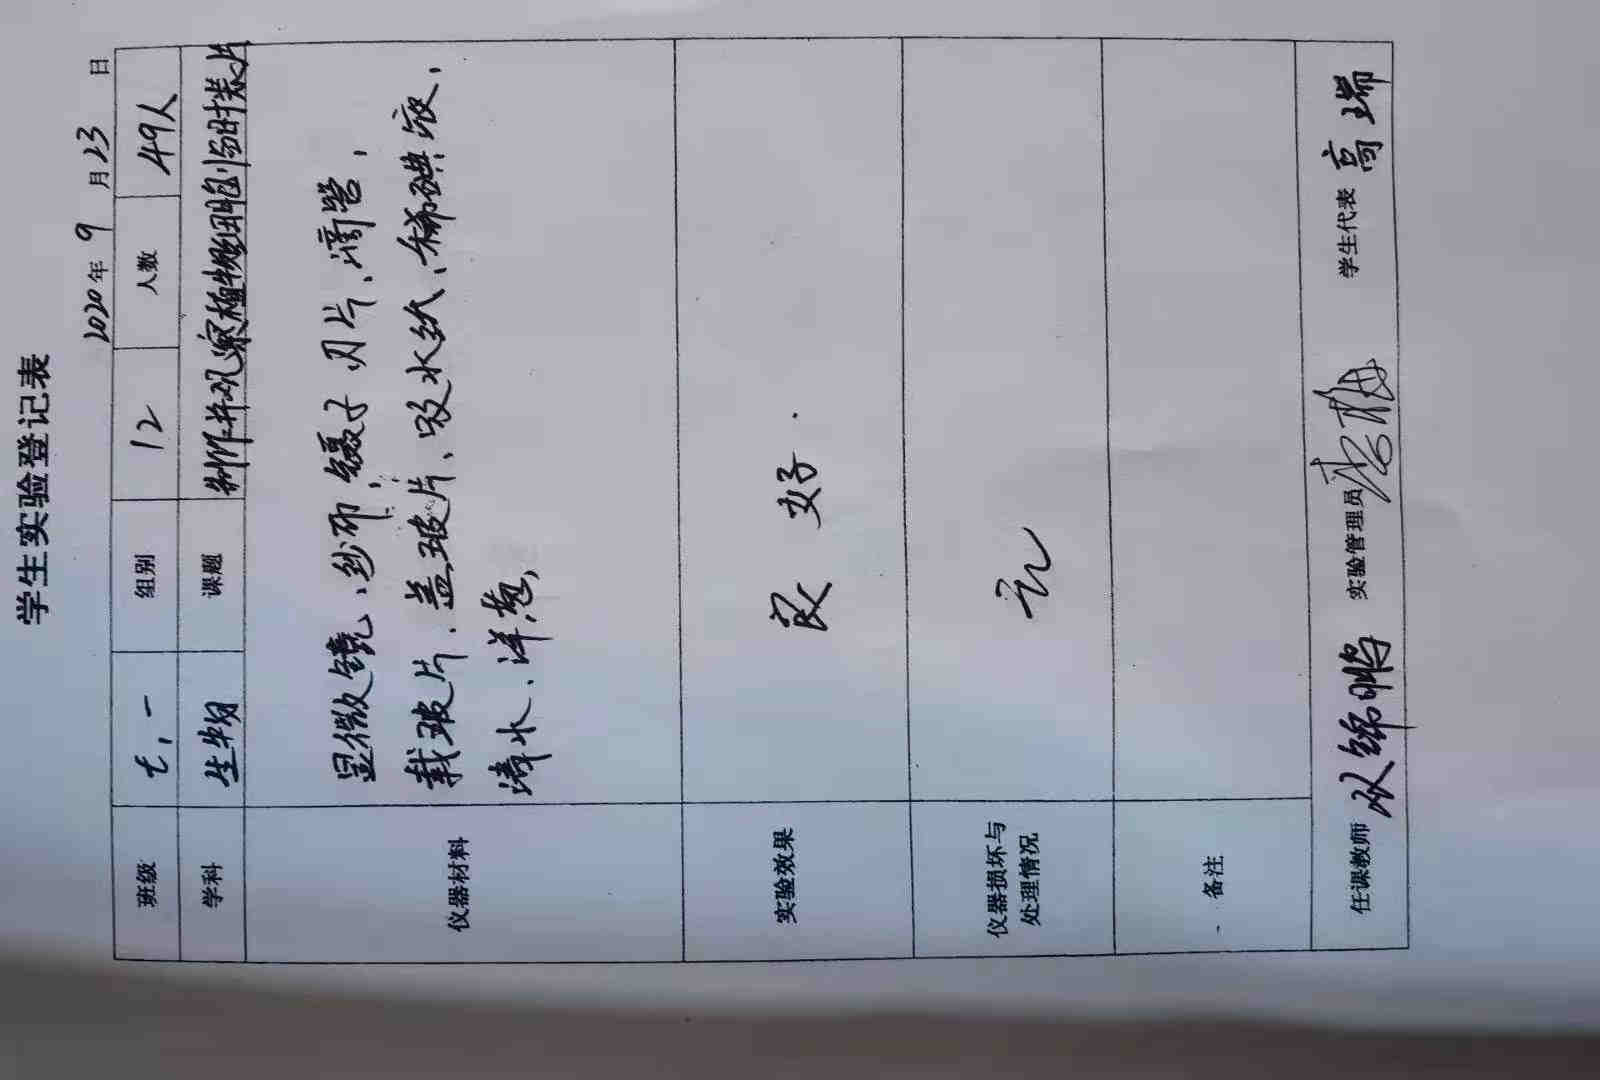 学生实验登记表
2020年 9 月 23 日
班级 七、一 组别 12 人数 49人
学科 生物 课题 制作并观察植物细胞临时装片
仪器材料
显微镜、纱布、镊子、刀片、滴管、
载玻片、盖玻片、吸水纸、稀碘液、
清水、洋葱、
实验效果 良好.
仪器损坏与
处理情况
无
备注
任课教师 实验管理员 学生代表 高瑞